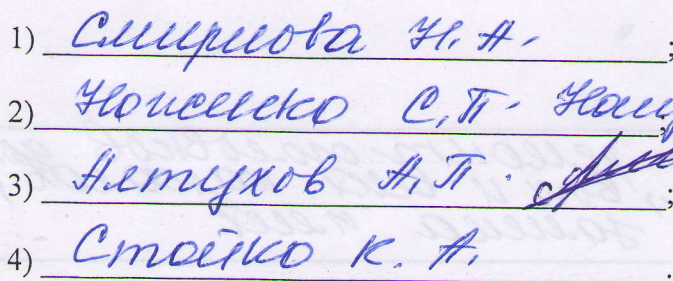 1) Смирнова Н. А. ;
2) С. П. ;
3) Алтухов А. П. ;
4) Стойко К. А. .